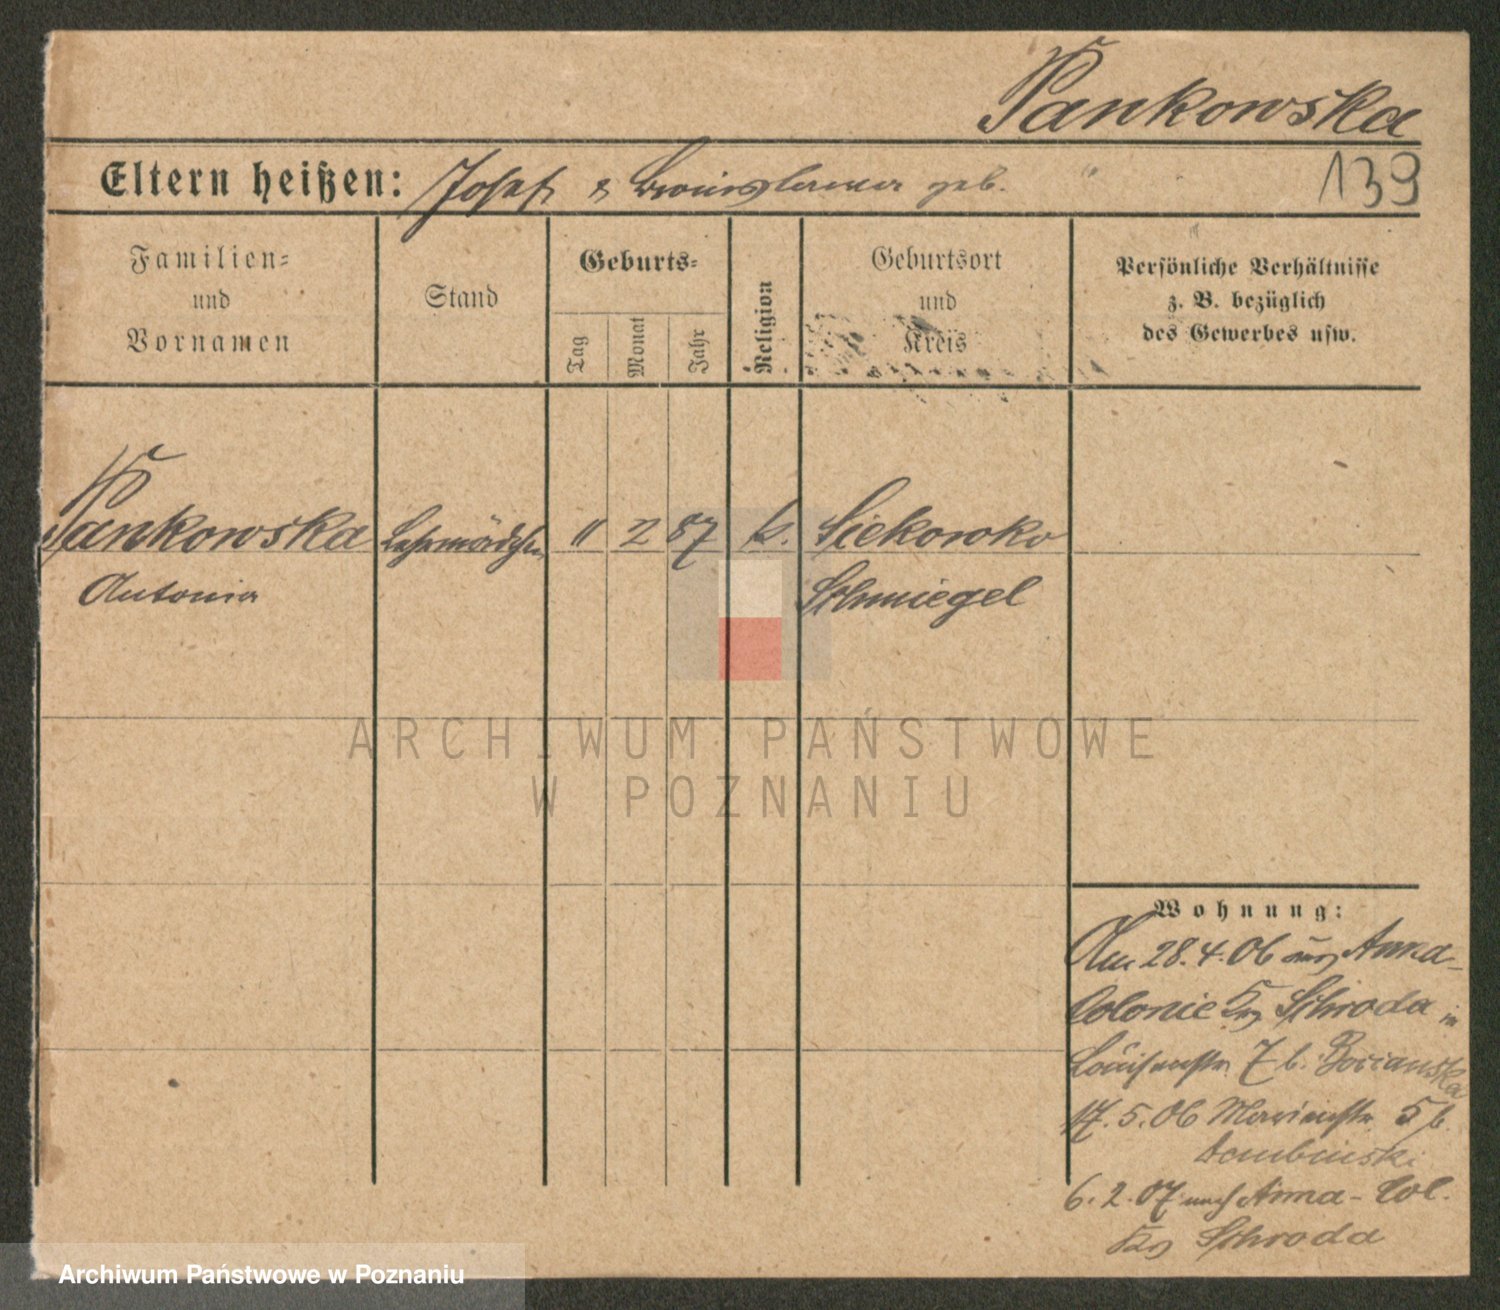 Pankowska
139
Eltern heißen: Josef & Bronislawa geb.
Familien=
und
Vornamen
Stand
Geburts=
Tag
Monat
Jahr
Religion
Geburtsort
und
Kreis
Persönliche Verhältnisse
z. B. bezüglich
des Gewerbes usw.
Pankowska
Antonia
Lehrmädchen
11 2 87 k.
Siekowko
Schmiegel
ARCHIWUM PAŃSTWOWE
W POZNANIU
Wohnung:
Am 28.4.06 aus Anna-
Colonie Krs Schroda in
Louisenstr. 7 b.
17.5.06 Marienstr 5 b.
Dembinski
6.2.07 nach Anna-Col.
Krs Schroda
Archiwum Państwowe w Poznaniu